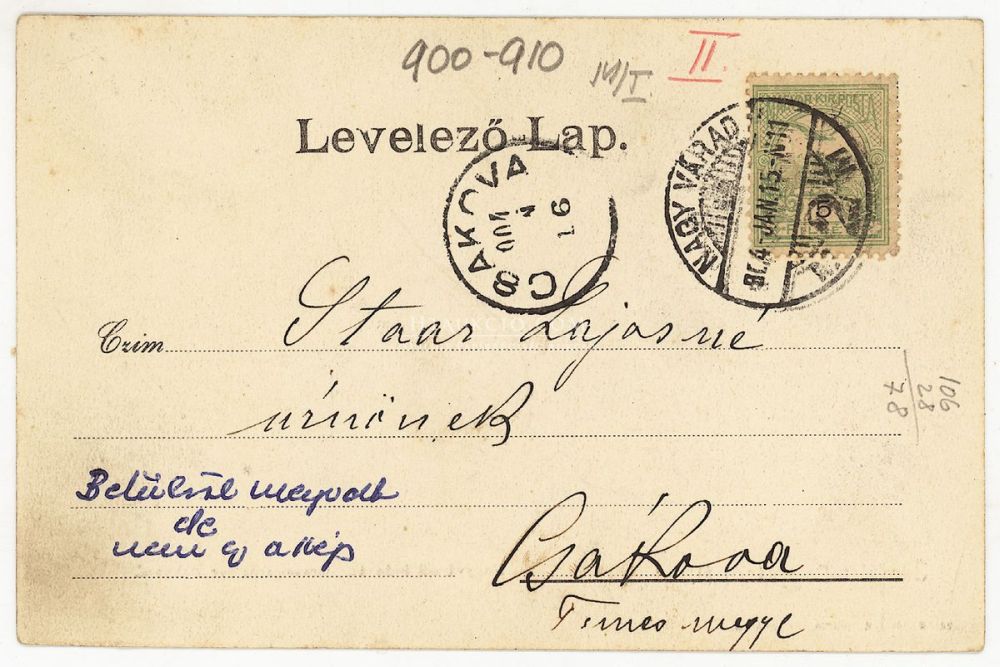 900-910
II.
Levelező-Lap.
MAGYAR KIR. POSTA
NAGY VÁRAD
904 JAN. 15-N11
CSAKOVA
904
16
Czim
Staar Lajosné
úrnőnek
106
28
78
Betűkről megvolt
de
nem ez a kép
Csákova
Temes megye